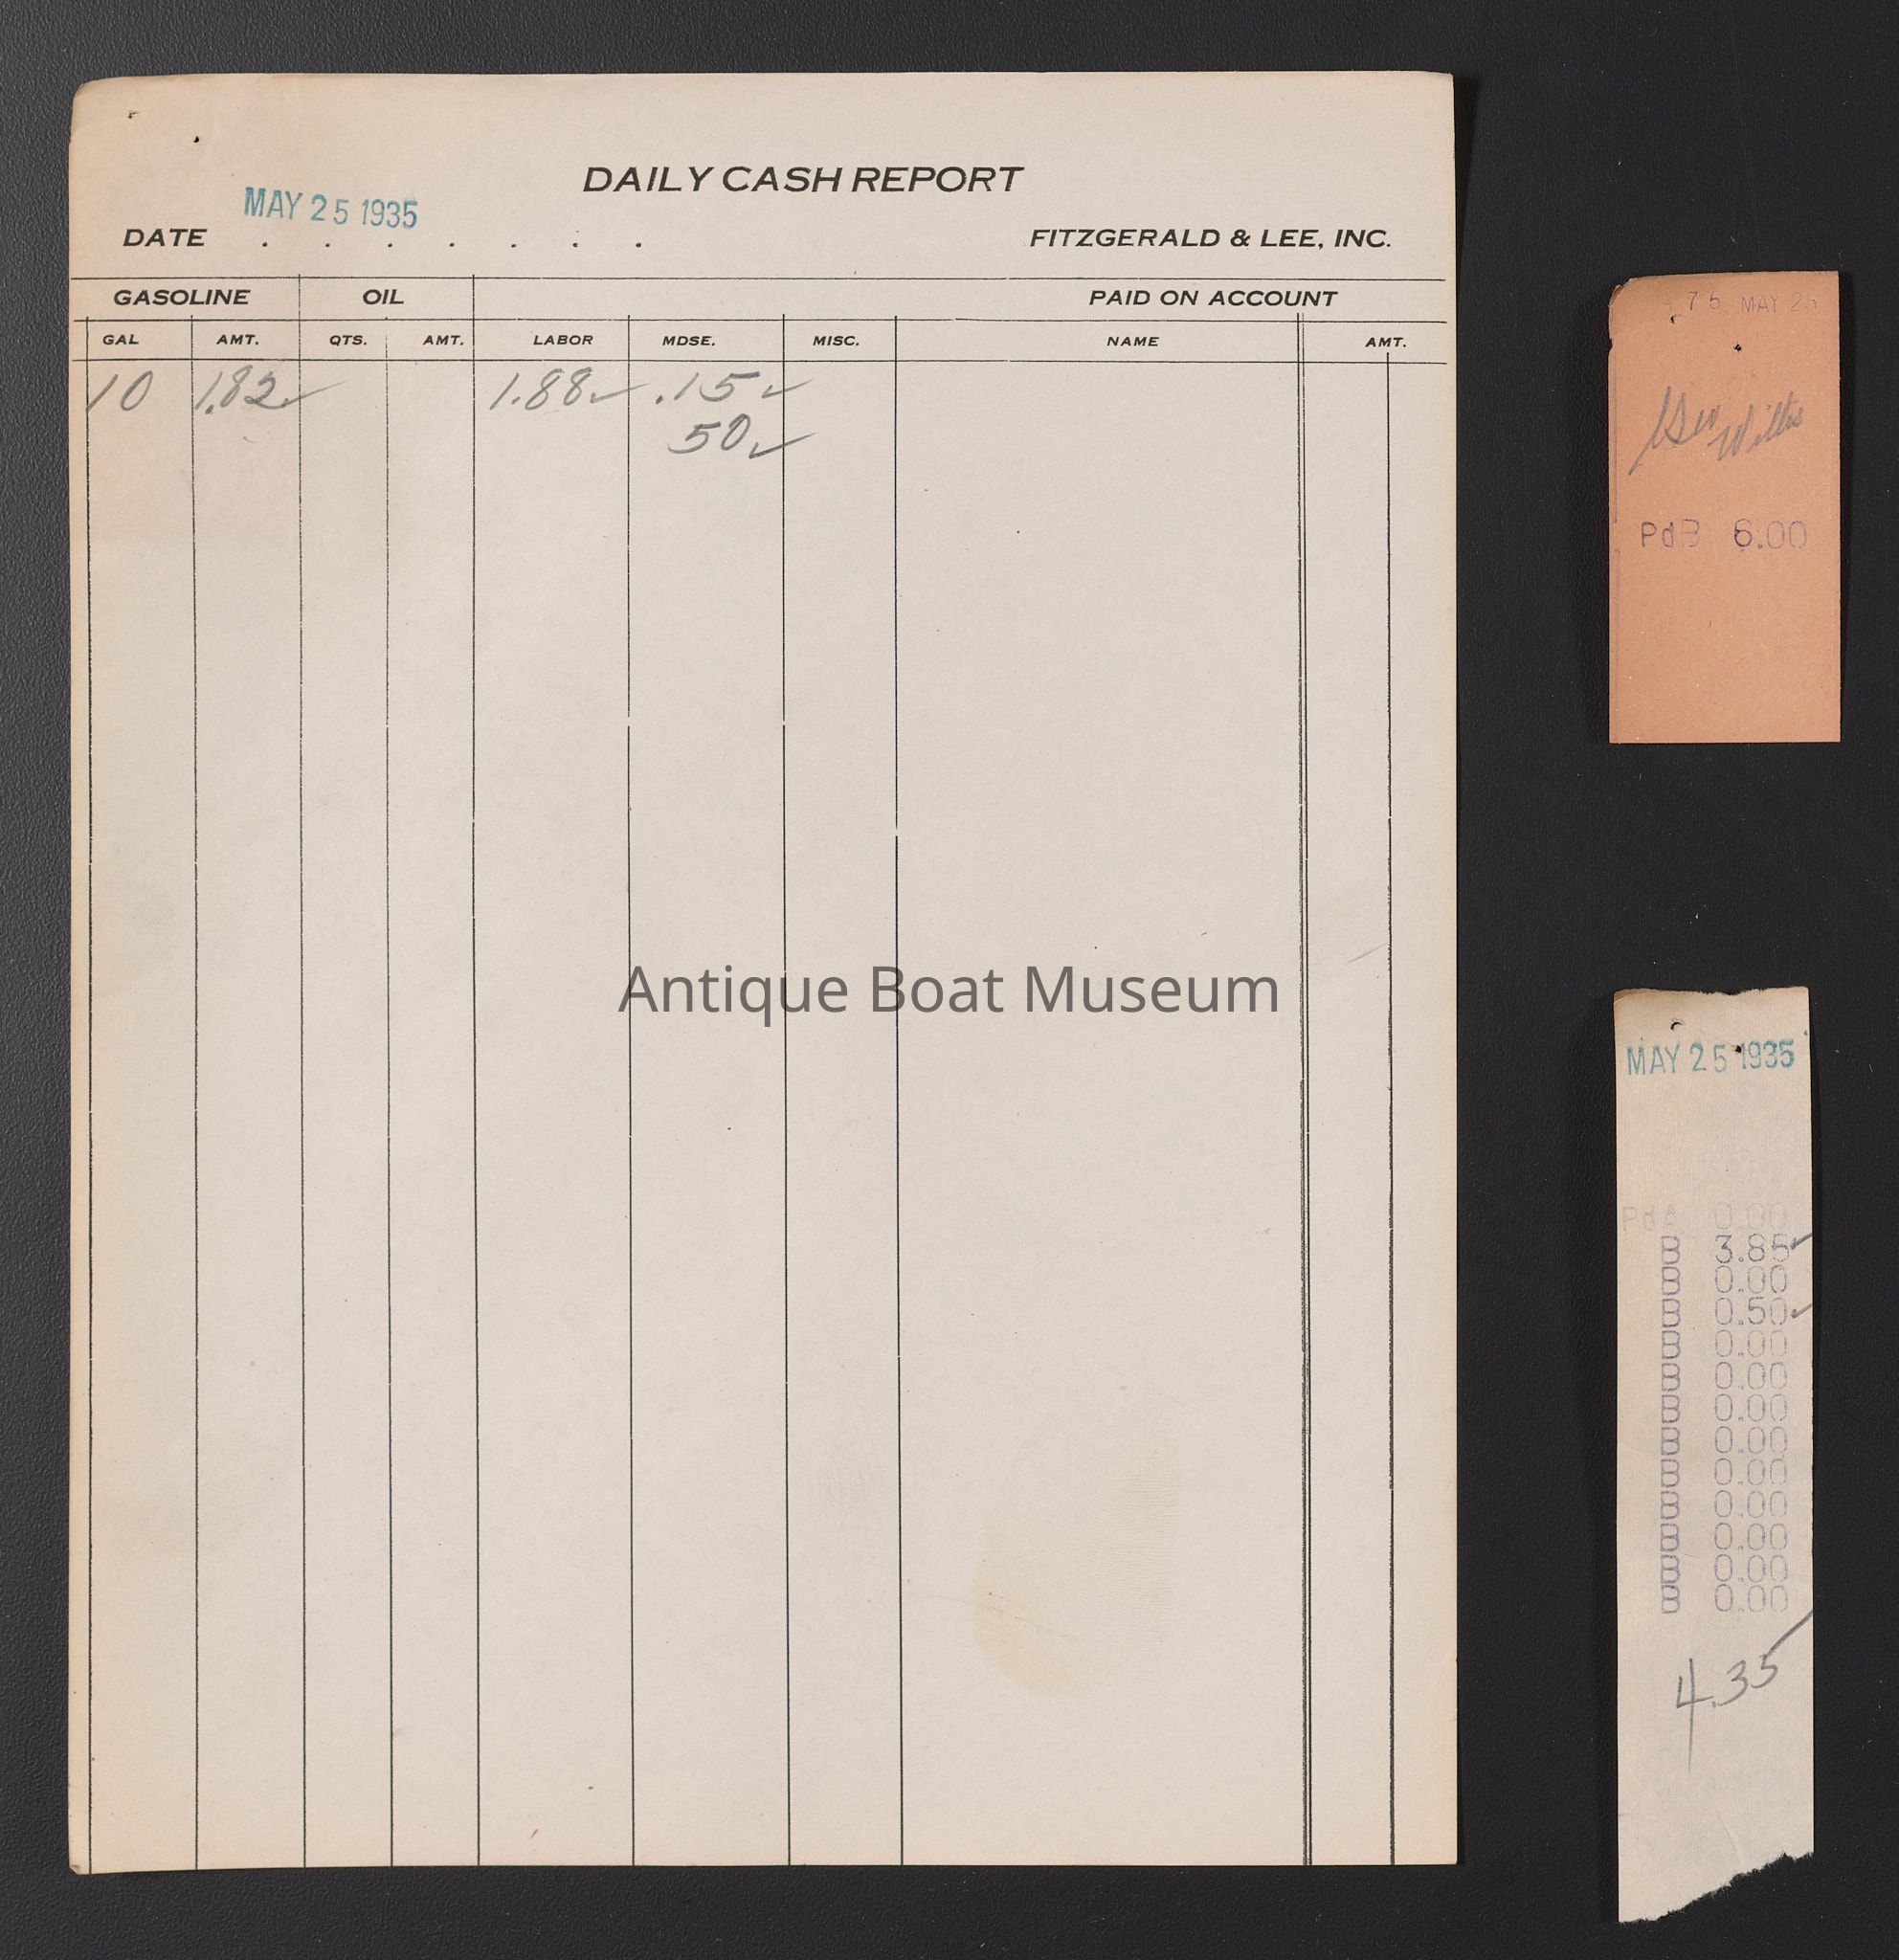 DAILY CASH REPORT
MAY 25 1935
DATE . . . . . . . FITZGERALD & LEE, INC.
GASOLINE OIL PAID ON ACCOUNT
GAL AMT. QTS. AMT. LABOR MDSE. MISC. NAME AMT.
10 1.82✓ 1.88✓ .15✓
50✓
Antique Boat Museum
75 MAY 25
Willis
PdB 6.00
MAY 25 1935
PdA 0.00
B 3.85✓
B 0.00
B 0.50✓
B 0.00
B 0.00
B 0.00
B 0.00
B 0.00
B 0.00
B 0.00
B 0.00
B 0.00
4.35